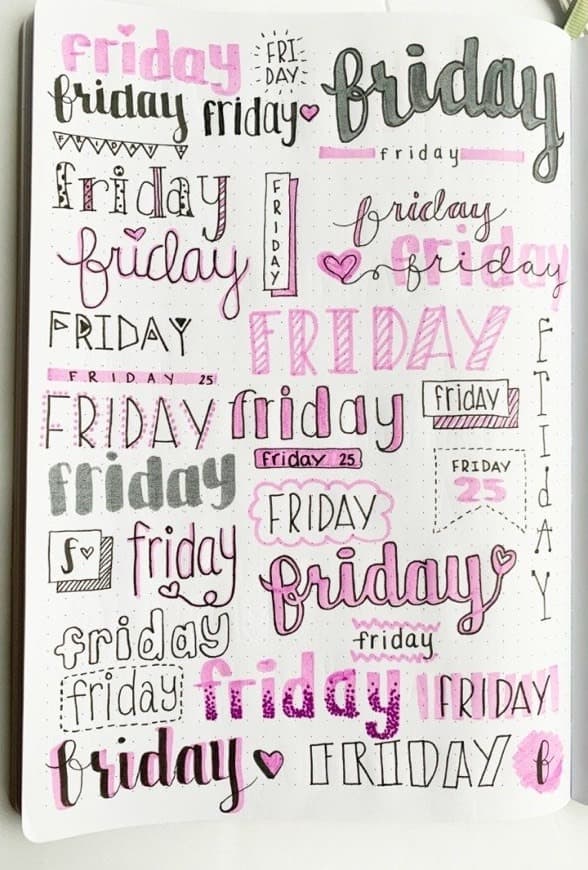 friday
FRI
DAY
friday
friday
friday
FRIDAY
friday
friday
FRIDAY
friday
friday
friday
friday
FRIDAY
FRIDAY
FrIdAY
FRIDAY 25
FRIDAY
friday
fridAY
friday 25
FRIDAY
25
friday
FRIDAY
f
friday
friday
friday
friday
friday
friday
FRIDAY
friday
FRIDAY
f